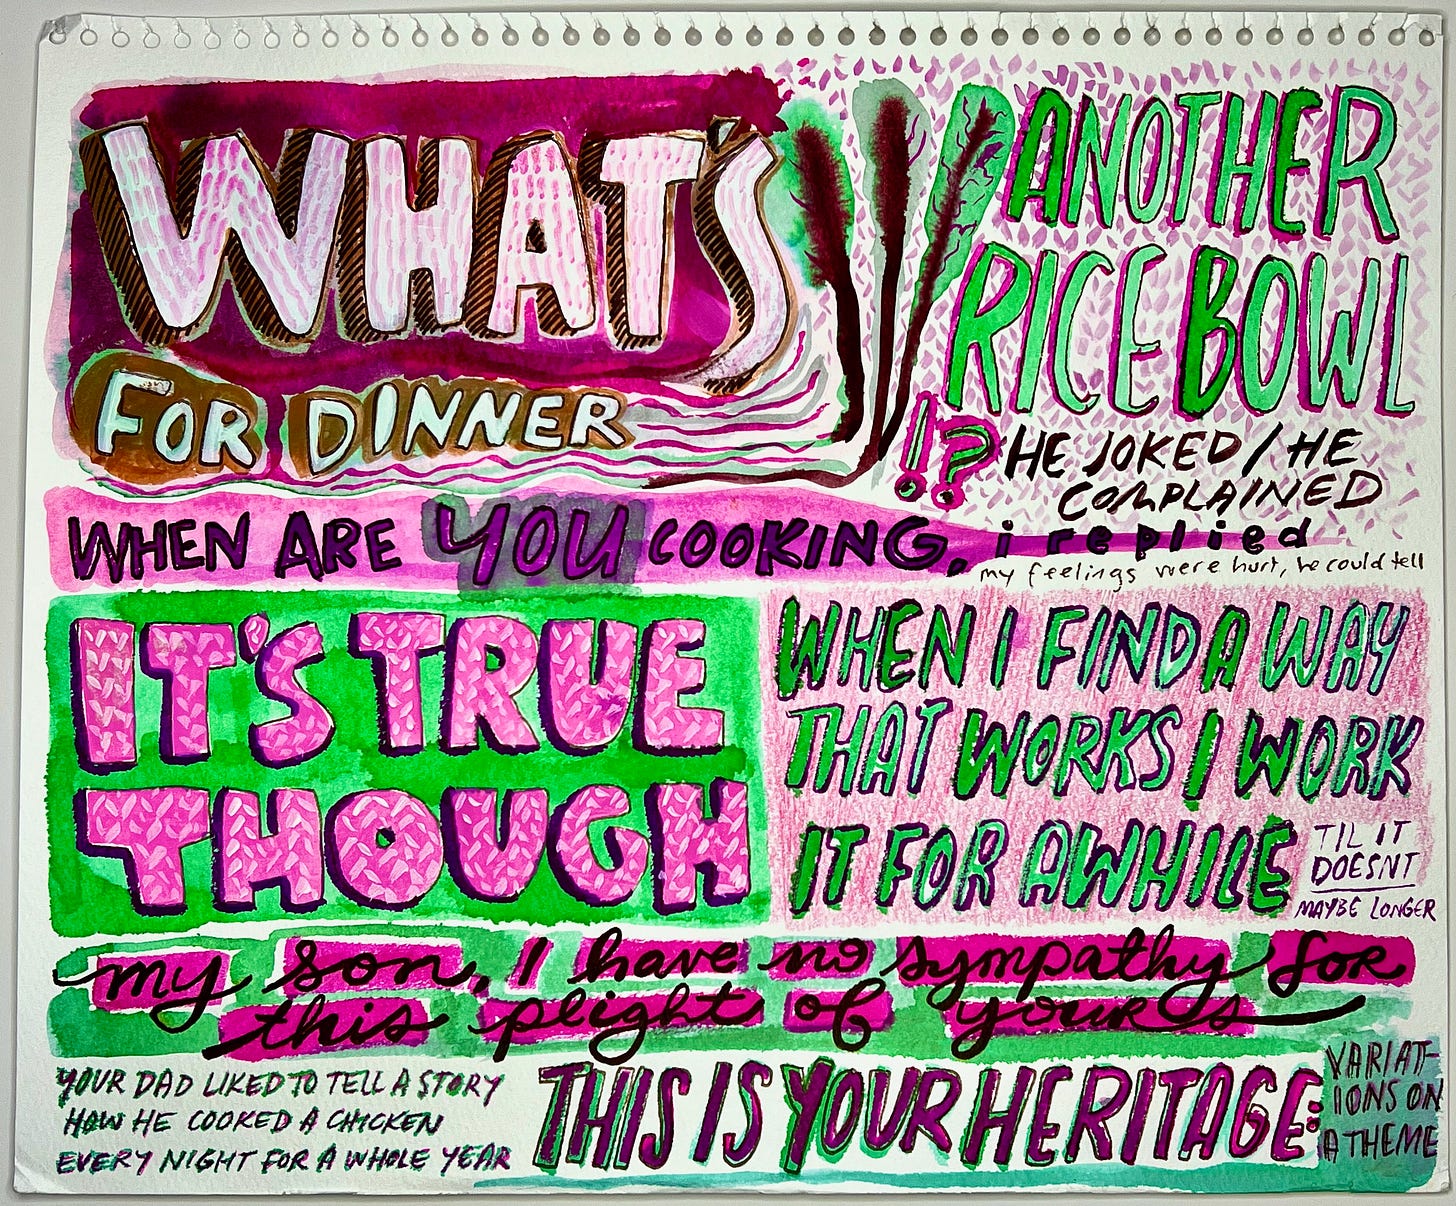 WHAT'S
FOR DINNER
ANOTHER
RICE BOWL
!? HE JOKED / HE
COMPLAINED
WHEN ARE YOU COOKING, i replied
my feelings were hurt, he could tell
IT'S TRUE
THOUGH
WHEN I FIND A WAY
THAT WORKS I WORK
IT FOR AWHILE
TIL IT
DOESNT
MAYBE LONGER
my son, I have no sympathy for
this plight of yours
YOUR DAD LIKED TO TELL A STORY
HOW HE COOKED A CHICKEN
EVERY NIGHT FOR A WHOLE YEAR
THIS IS YOUR HERITAGE:
VARIAT-
IONS ON
A THEME